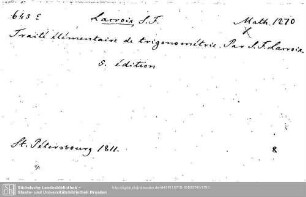 643 E Lacroix S.F. Math. 1270
Traité élémentaire de trigonométrie. Par S.F. Lacroix
5. édition
St. Pétersbourg 1811. 8
Sächsische Landesbibliothek -
Staats- und Universitätsbibliothek Dresden